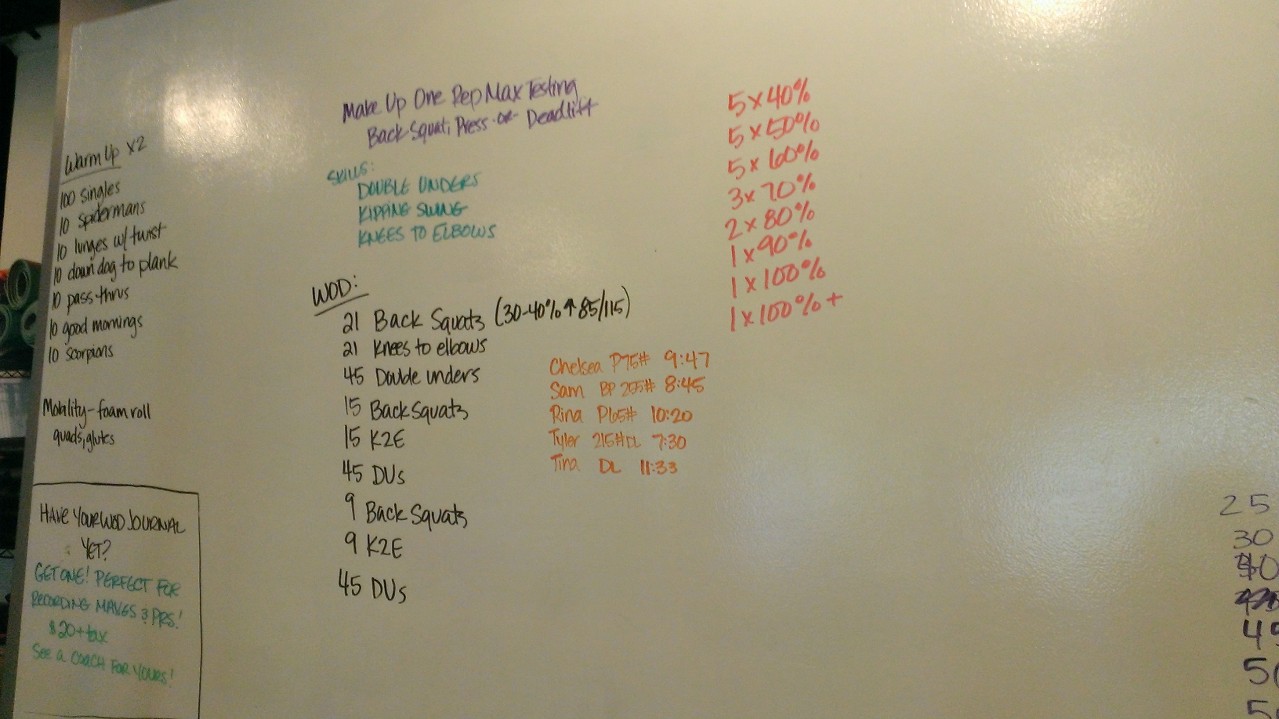 Make Up One Rep Max Testing
Back Squat, Press -or- Deadlift
Warm Up x2
100 singles
10 spidermans
10 lunges w/ twist
10 down dog to plank
10 pass-thrus
10 good mornings
10 scorpions
Mobility - foam roll
quads, glutes
HAVE YOUR WOD JOURNAL
YET?
GET ONE! PERFECT FOR
RECORDING MAXES & PRS!
$20+tax
SEE A COACH FOR YOURS!
SKILLS:
DOUBLE UNDERS
KIPPING SWING
KNEES TO ELBOWS
WOD:
21 Back Squats (30-40% ↑ 85/115)
21 Knees to elbows
45 Double unders
15 Back Squats
15 K2E
45 DUs
9 Back Squats
9 K2E
45 DUs
Chelsea P75# 9:47
Sam BP 8:45
Rina P65# 10:20
Tyler 215#DL 7:30
Tina DL 11:33
5 x 40%
5 x 50%
5 x 60%
3 x 70%
2 x 80%
1 x 90%
1 x 100%
1 x 100% +
25
30